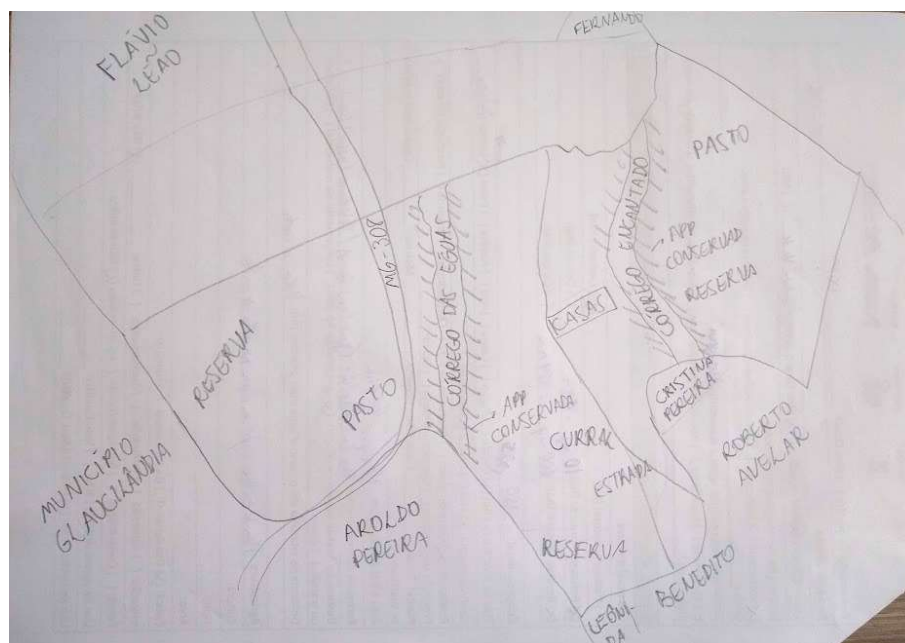 FERNANDO
FLÁVIO
LEÃO
PASTO
MG-308
CÓRREGO DAS ÉGUAS
CÓRREGO ENCANTADO
APP
CONSERVAD
RESERVA
CASAS
RESERVA
PASTO
APP
CONSERVADA
CRISTINA
PEREIRA
CURRAL
ESTRADA
ROBERTO
AVELAR
MUNICÍPIO
GLAUCILÂNDIA
AROLDO
PEREIRA
RESERVA
BENEDITO
LEÔNI-
DA